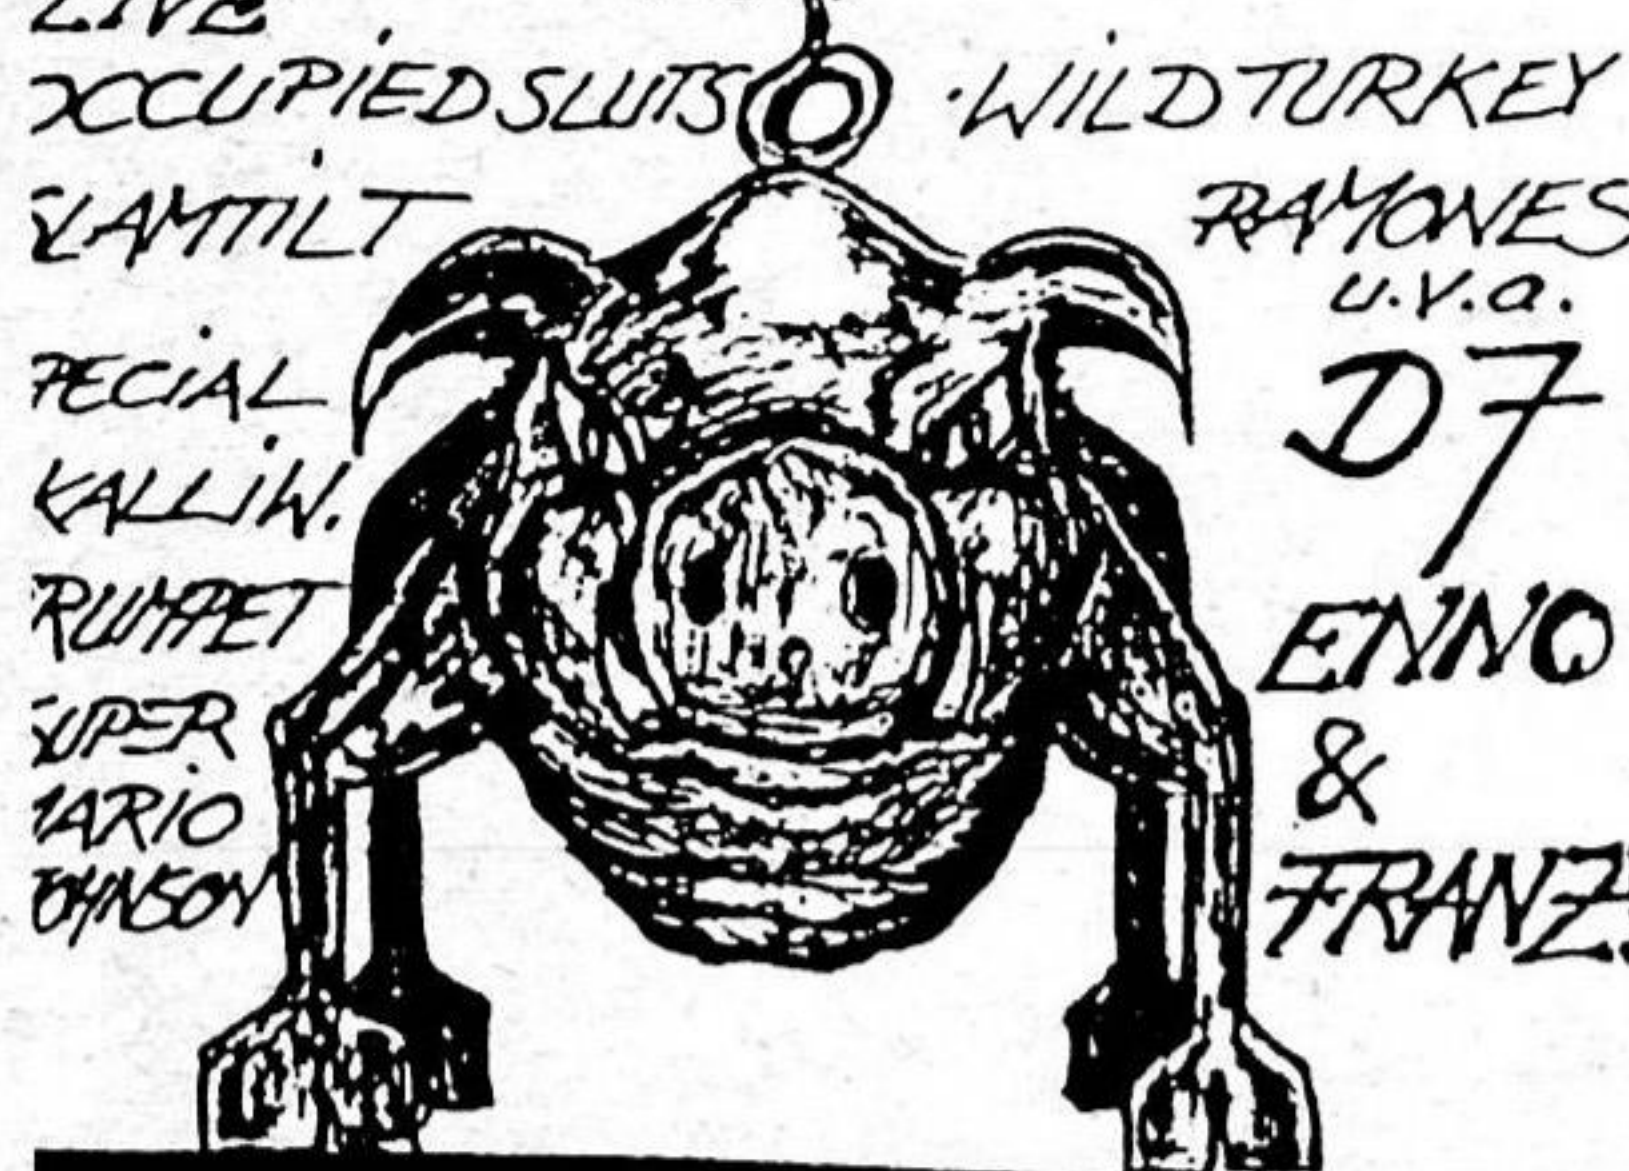 LIVE
OCCUPIED SLUTS
SLAMTILT
PECIAL
KALLI W.
RUMPET
SUPER
MARIO
JOHNSON
·WILD TURKEY
RAMONES
u.v.a.
D7
ENNO
&
FRANZ